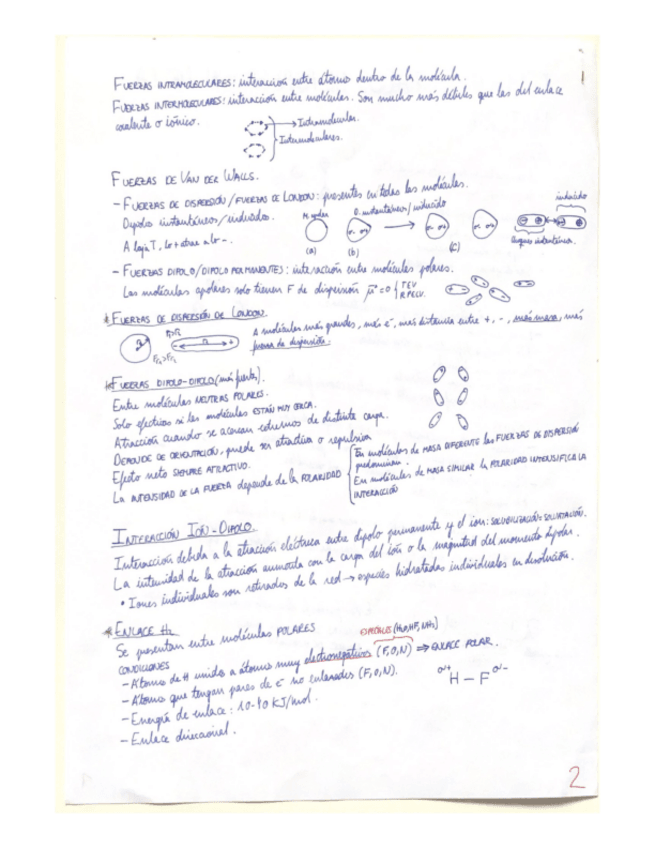 FUERZAS INTRAMOLECULARES: interacción entre átomos dentro de la molécula.
FUERZAS INTERMOLECULARES: interacción entre moléculas. Son mucho más débiles que las del enlace
covalente o iónico.
Intramolecular.
Intermoleculares.
FUERZAS DE VAN DER WALLS.
- FUERZAS DE DISPERSIÓN / FUERZAS DE LONDON: presentes en todas las moléculas.
Dipolos instantáneos / inducidos.
D. instantáneo / inducido
inducido
A baja T, lo + atrae a lo -.
(a) (b) (c)
- FUERZAS DIPOLO/DIPOLO PERMANENTES: interacción entre moléculas polares.
Las moléculas apolares solo tienen F de dispersión μ=0 { TEV
RPECV.
* FUERZAS DE DISPERSIÓN DE LONDON.
A moléculas más grandes, más e⁻, más distancia entre +, -, más masa, más
fuerza de dispersión.
* FUERZAS DIPOLO-DIPOLO (más fuertes).
Entre moléculas NEUTRAS POLARES.
Solo efectivas si las moléculas ESTÁN MUY CERCA.
Atracción cuando se acercan extremos de distinta carga.
DEPENDE DE ORIENTACIÓN, puede ser atractiva o repulsiva
Efecto neto SIEMPRE ATRACTIVO.
La INTENSIDAD DE LA FUERZA depende de la POLARIDAD
En moléculas de MASA DIFERENTE las FUERZAS DE DISPERSIÓN
predominan.
En moléculas de MASA SIMILAR la POLARIDAD INTENSIFICA LA
INTERACCIÓN
INTERACCIÓN IÓN-DIPOLO.
Interacción debida a la atracción eléctrica entre dipolo permanente y el ion:
La intensidad de la atracción aumenta con la carga del ión o la magnitud del momento dipolar.
• Iones individuales son retirados de la red → especies hidratadas individuales en disolución.
* ENLACE H₂
Se presentan entre moléculas POLARES
ESPECIALES (H₂O, HF, NH₃)
CONDICIONES
- Átomo de H unido a átomo muy electronegativo (F, O, N) ⇒ ENLACE POLAR.
- Átomo que tengan pares de e⁻ no enlazados (F, O, N).
H - F
- Energía de enlace: 10-40 KJ/mol.
- Enlace direccional.
2